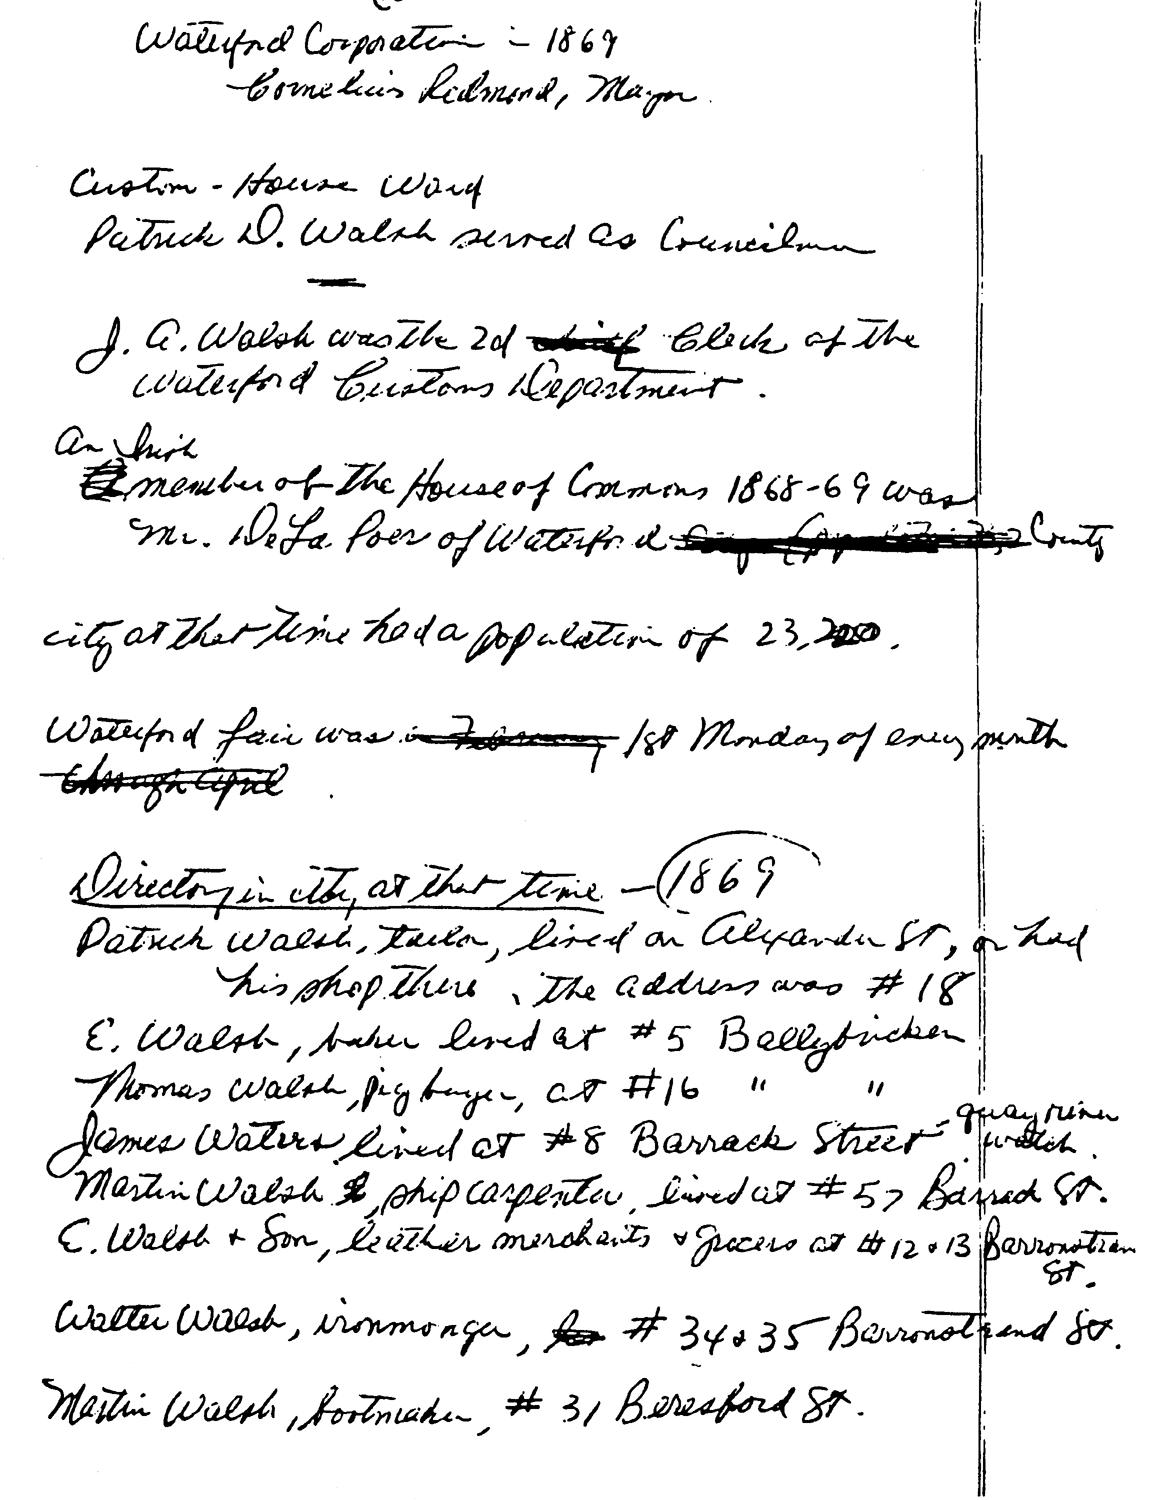 Waterford Corporation - 1869
Cornelius Redmond, Mayor.
Custom-House Ward
Patrick D. Walsh served as Councilman
J. A. Walsh was the 2d chief Clerk of the
Waterford Customs Department.
An Irish
A member of the House of Commons 1868-69 was
Mr. DeLa Poer of Waterford County
city at that time had a population of 23,200.
Waterford fair was in February 1st Monday of every month
through April.
Directory in city at that time - 1869
Patrick Walsh, tailor, lived on Alexander St, or had
his shop there, the address was #18
E. Walsh, baker lived at #5 Ballybricken
Thomas Walsh, pig buyer, at #16 " "
- quay river
James Waters, lived at #8 Barrack Street watch.
Martin Walsh, ship carpenter, lived at #57 Barrack St.
E. Walsh + Son, leather merchants & grocers at #12 & 13 Barronstran
St.
Walter Walsh, ironmonger, #34 & 35 Barronstrand St.
Martin Walsh, bootmaker, #31 Beresford St.